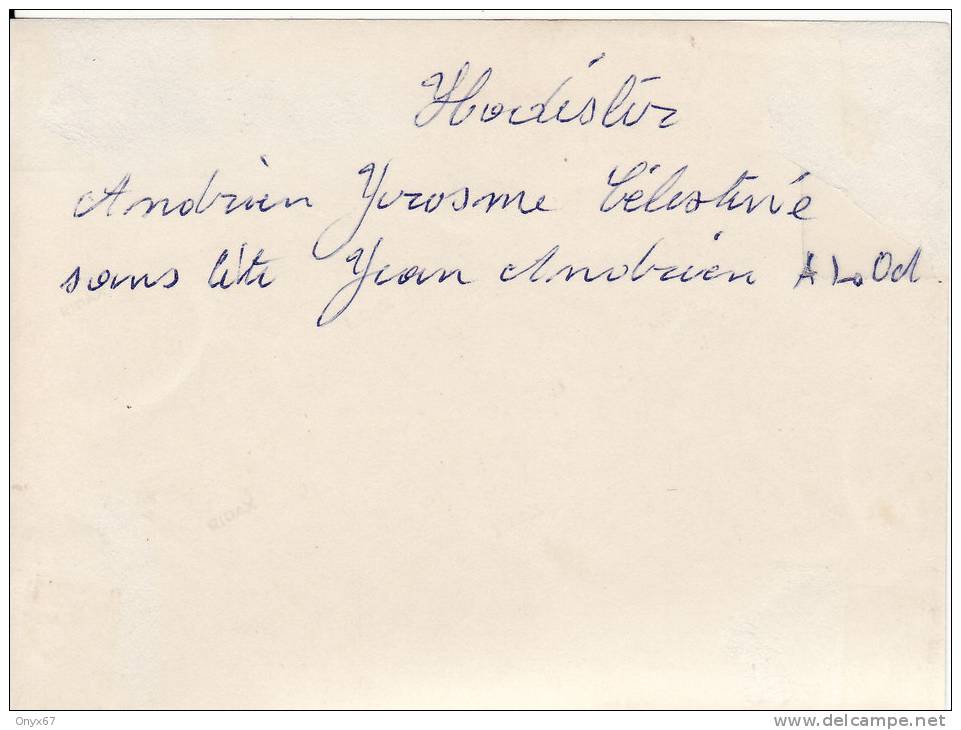 Hodister
Andrien Yerosme Célestine
sans tête Jean Andrien A L. Od
Onyx67
www.delcampe.net